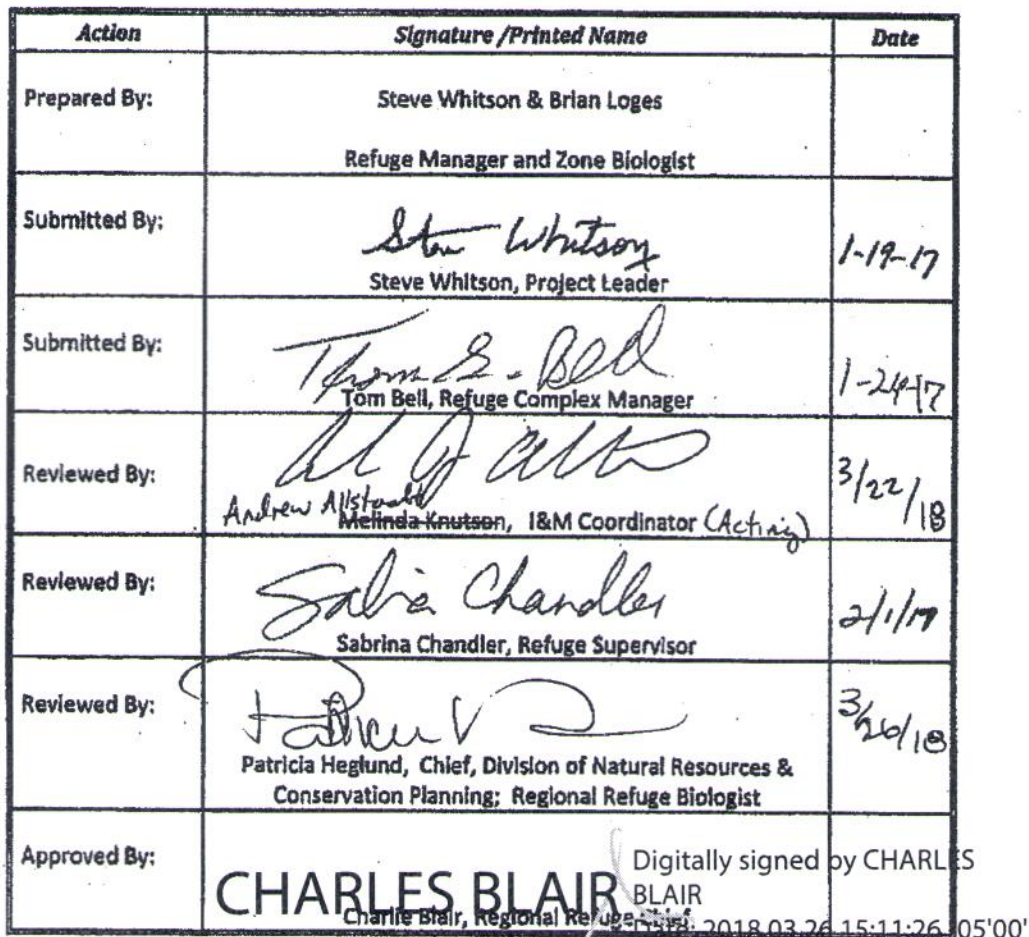 Action Signature/Printed Name Date
Prepared By: Steve Whitson & Brian Loges
Refuge Manager and Zone Biologist
Submitted By: Steve Whitson 1-19-17
Steve Whitson, Project Leader
Submitted By: Thomas G. Bell 1-24-17
Tom Bell, Refuge Complex Manager
Reviewed By: 3/22/18
Andrew Allstadt
Melinda Knutson, I&M Coordinator (Acting)
Reviewed By: Sabrina Chandler 2/1/17
Sabrina Chandler, Refuge Supervisor
Reviewed By: 3/26/18
Patricia Heglund, Chief, Division of Natural Resources &
Conservation Planning; Regional Refuge Biologist
Approved By: CHARLES BLAIR
Digitally signed by CHARLES
BLAIR
Charlie Blair, Regional Refuge
2018.03.26 15:11:26 05'00'